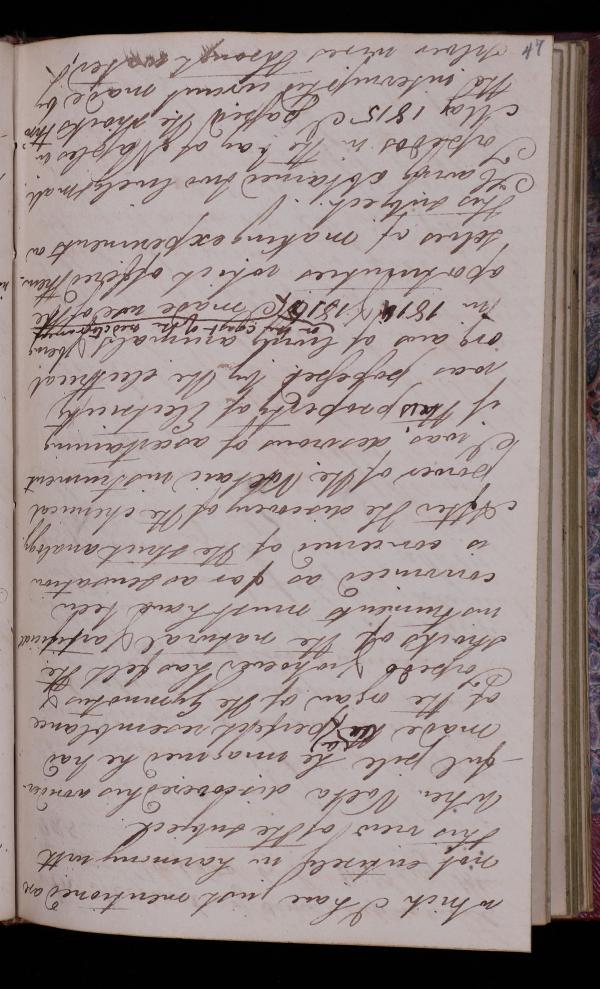 47
which I have just mentioned are
not entirely in harmony with
this view of the subject.
When Volta discovered his wonder
-ful pile he imagined he had
made a perfect resemblance
of the organ of the Gymnotus &
Torpedo & whoever has felt the
shocks of the natural & artificial
instruments must have been
convinced as far as sensation
is concerned of the strict analogy.
After the discovery of the chemical
power of the Voltaic instrument
I was desirous of ascertaining
if this property of Electricity
was possessed by the electrical
organs of living animals & being
in 1814 & 1815 on the coast of the Mediterranean
I made use of the
oportunities which offered them-
selves of making experiments on
this subject.
Having obtained two lively small
Torpedos in the bay of Naples in
May 1815 I passed the shocks thro'
the interrupted circuit made by
silver wires through water